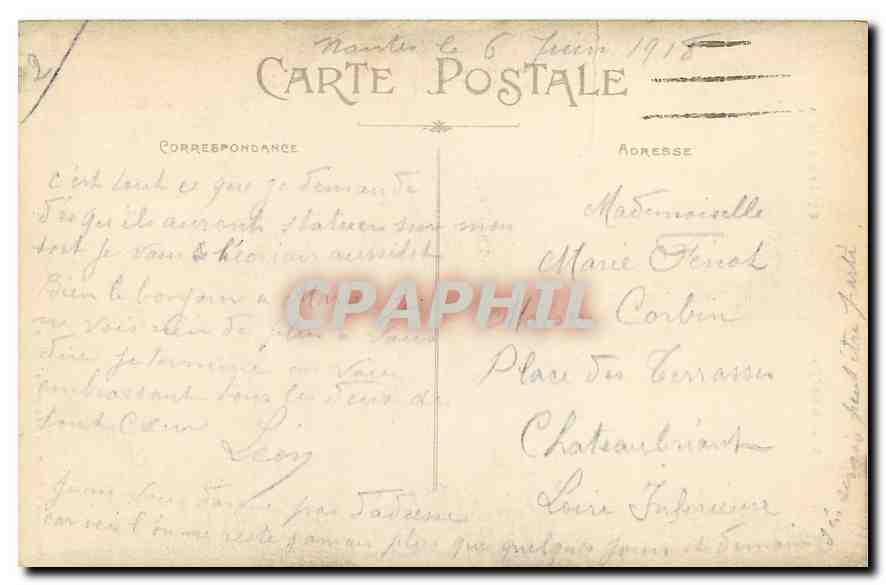 Nantes le 6 Juin 1918
CARTE POSTALE
CORRESPONDANCE
ADRESSE
2
c'est tout ce que je demande
des qu'ils auront statuer sur mon
sort je vous l'écrirai aussitot
Bien le bonjour a
ne vois rien de plus a vous
dire je termine en vous
embrassant tous les deux de
tout Cœur
Léon
Mademoiselle
Marie Fenol
Corbin
Place des Terrasses
Chateaubriant
Loire Inferieure
vous donne pas d'adresse
car ici l'on ne reste jamais plus que quelques jours et demain
je serais peut être parti.
CPAPHIL